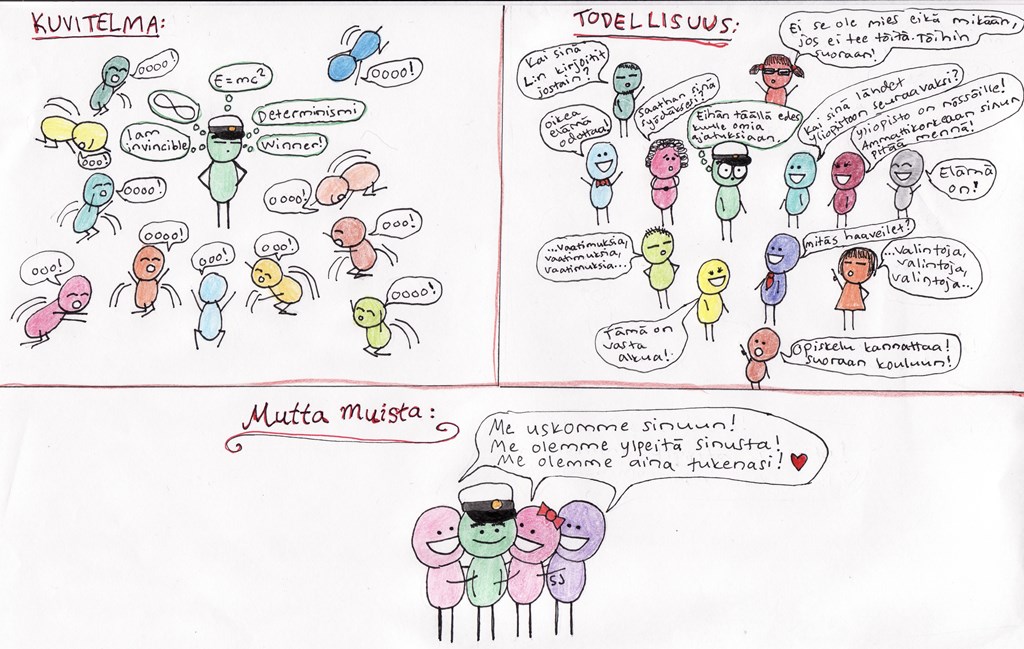 KUVITELMA:
oooo!
oooo!
E=mc²
∞
Determinismi
I am
invincible
Winner!
ooo!
oooo!
oooo!
ooo!
oooo!
ooo!
ooo!
ooo!
oooo!
TODELLISUUS:
Ei se ole mies eikä mikään,
jos ei tee töitä. Töihin
suoraan!
Kai sinä
Lin kirjoitit
jostain?
Saathan sinä
syödäksesi?
Kai sinä lähdet
yliopistoon seuraavaksi?
oikea
elämä
odottaa!
Eihän täällä edes
kuule omia
ajatuksiaan.
yliopisto on nössöille!
Ammattikorkeaan sinun
pitää mennä!
Elämä
on!
...vaatimuksia,
vaatimuksia,
vaatimuksia...
mitäs haaveilet?
...valintoja,
valintoja,
valintoja...
Tämä on
vasta
alkua!
Opiskelu kannattaa!
Suoraan kouluun!
Mutta muista:
Me uskomme sinuun!
Me olemme ylpeitä sinusta!
Me olemme aina tukenasi!
SJ